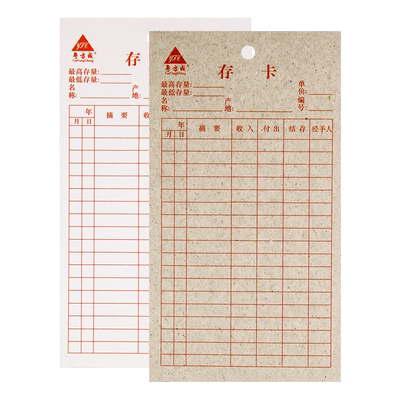 YFC
粤方成
YueFangCheng
存
最高存量:
最低存量:
名 产
称: 地:
年 摘 要 收
月 日
YFC
粤方成
YueFangCheng
存 卡
最高存量:
最低存量: 单价:
名 产 编
称: 地: 号:
年 摘 要 收 入 付 出 结 存 经手人
月 日